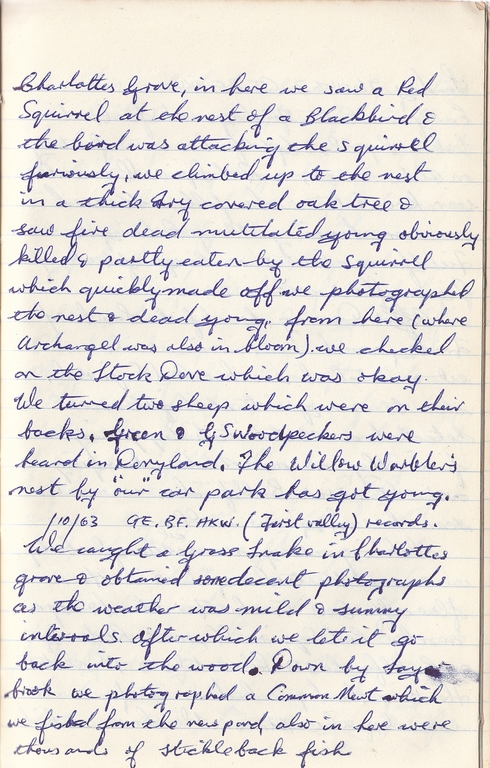 Charlottes Grove, in here we saw a Red
Squirrel at the nest of a Blackbird &
the bird was attacking the squirrel
furiously, we climbed up to the nest
in a thick Ivy covered oak tree &
saw five dead mutilated young obviously
killed & partly eaten by the Squirrel
which quickly made off we photographed
the nest & dead young, from here (where
Archangel was also in bloom). we checked
on the Stock Dove which was okay.
We turned two sheep which were on their
backs. Green & G S Woodpeckers were
heard in Derryland. The Willow Warbler's
nest by "our" car park has got young.
/10/63 GE. BF. AKW. (First valley) records.
We caught a Grass Snake in Charlottes
grove & obtained some decent photographs
as the weather was mild & sunny
intervals. After which we let it go
back into the wood. Down by
brook we photographed a Common Newt which
we fished from the new pond, also in here were
thousands of stickleback fish